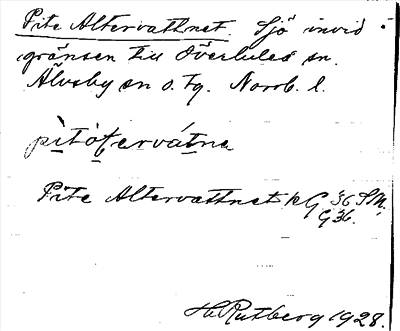 Pite Altervattnet. Sjö invid
gränsen till Överluleå sn.
Älvsby sn o. tg. Norrb. l.
pìtòḷtervátna
Pite Altervattnet kG 36 SM.
G 36.
H. Rutberg 1928.